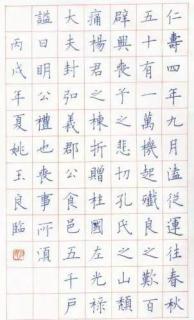 仁壽四年九月溘從運往春秋
五十有一萬機起殲良之歎百
辟興喪予之悲切孔氏之山頹
痛楊君之棟折贈柱國左光祿
大夫封弘義郡公食邑五千戶
謚曰明禮也喪事所須
丙戌年夏姚玉良臨